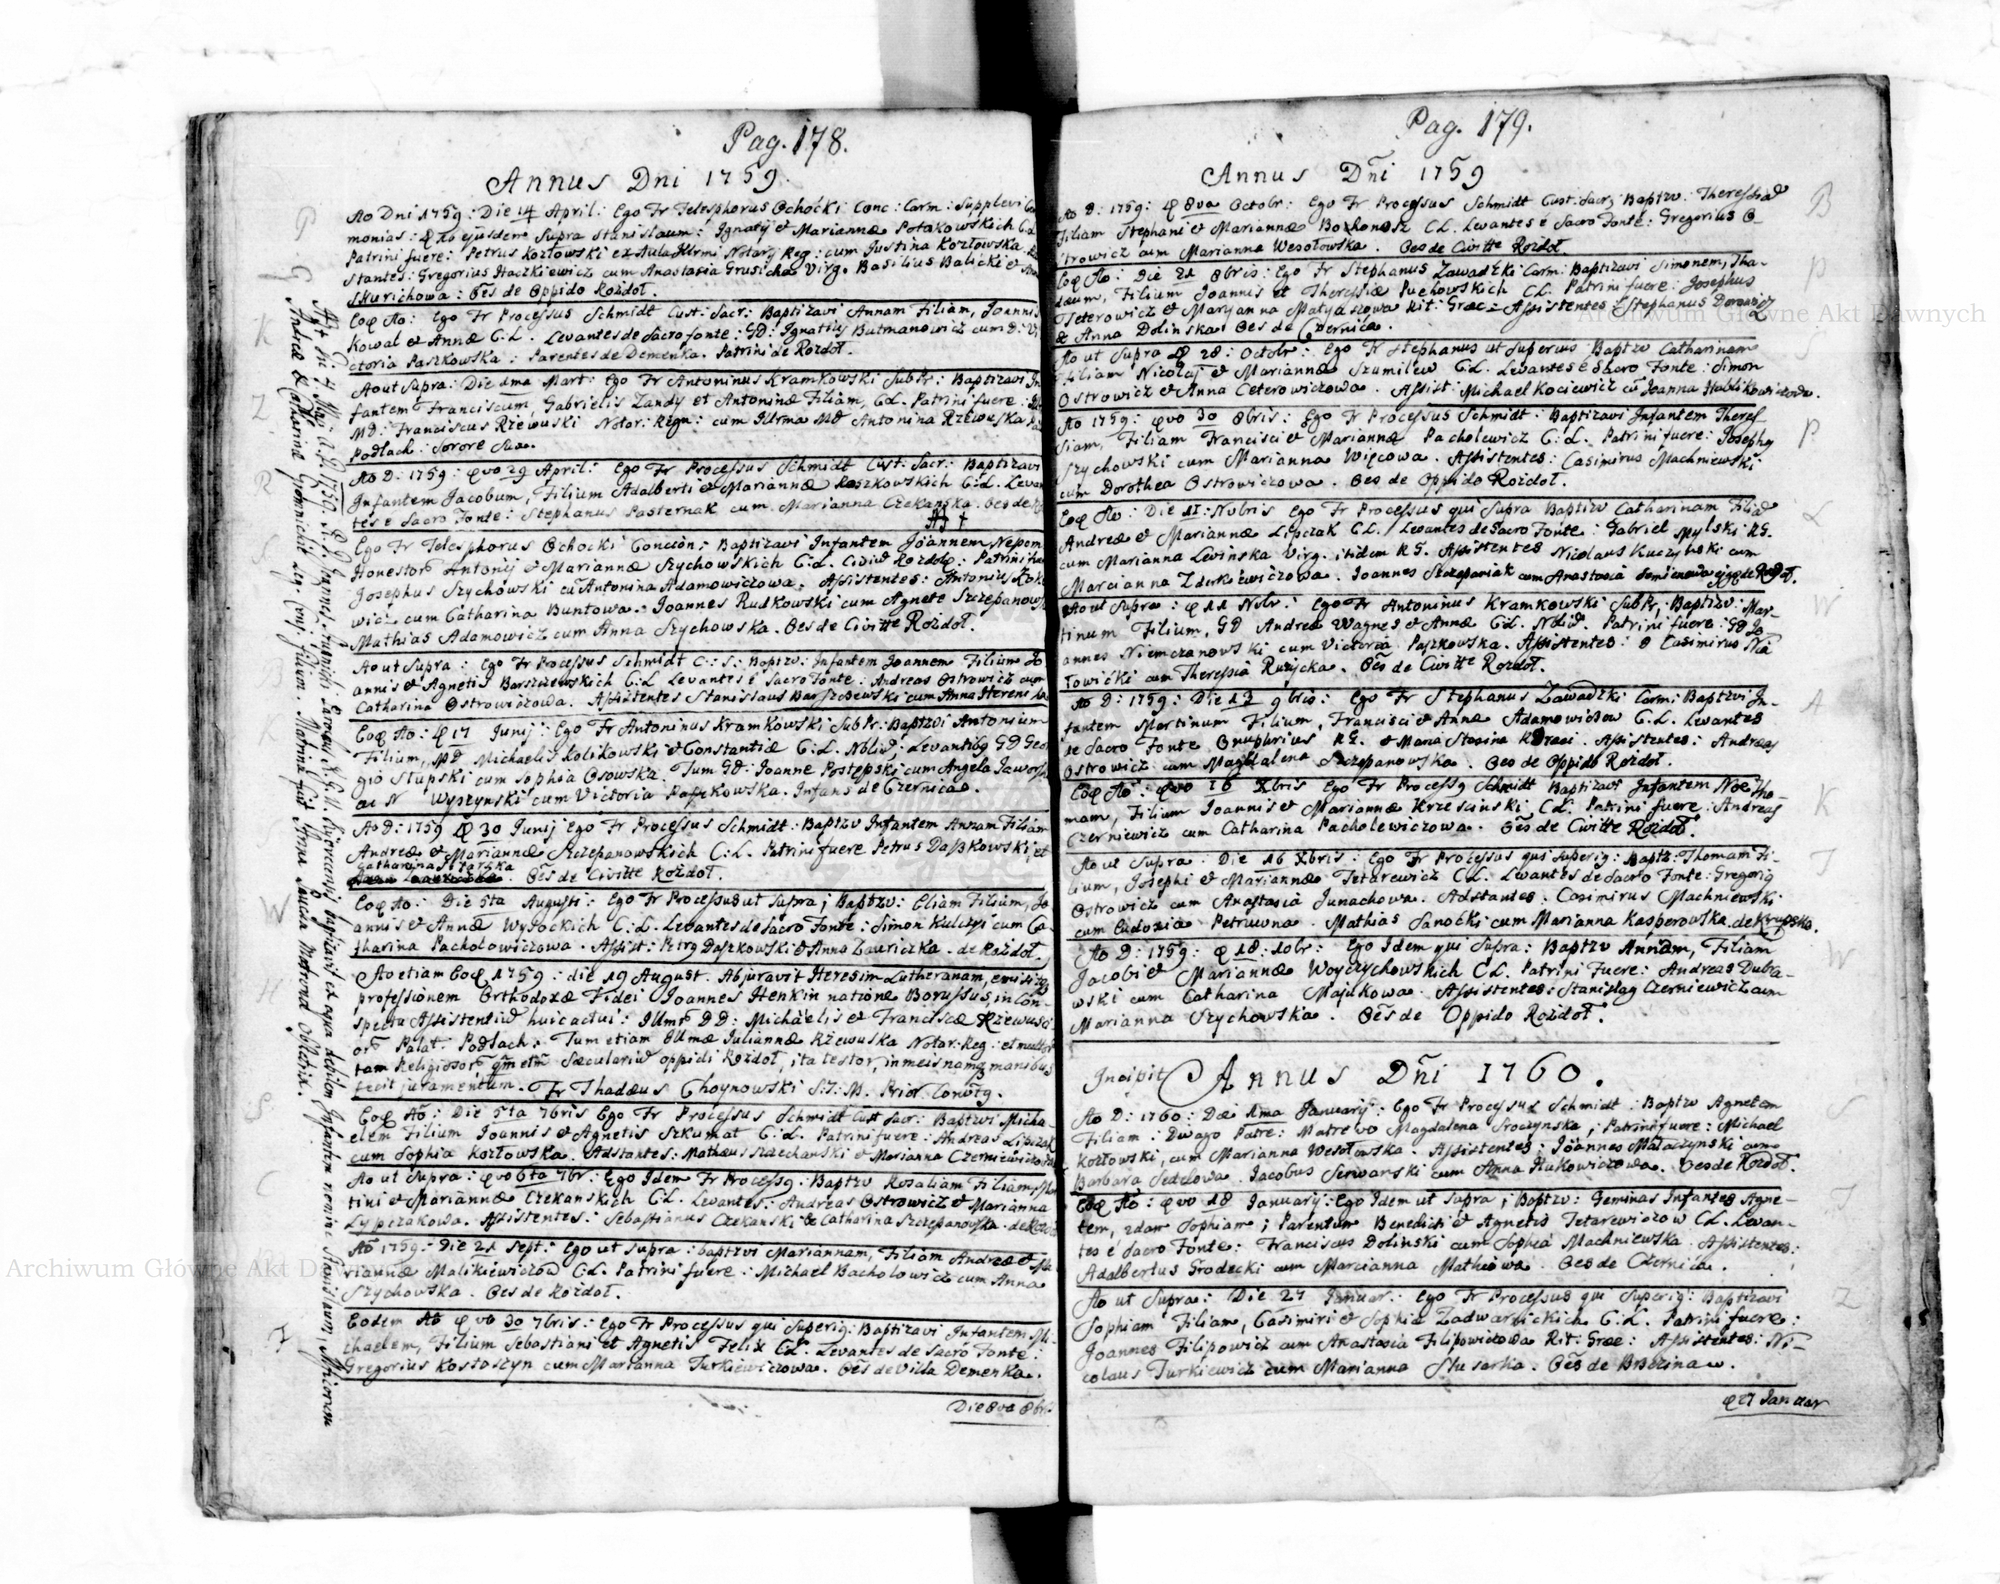 Pag. 178.
Annus Dni 1759.
P
Ao Dni 1759: Die 14 April: Ego Fr Telesphorus Ochocki Conc: Carm: Supplevi
monias: ejusdem Supra Stanislaum: Ignatij et Mariannæ Potakowskich
Patrini fuere: Petrus Kozłowski ex Aula Notarij Reg: cum Justina Kozłowska
stantes: Gregorius Haczkiewicz cum Anastasia Virg. Basilius Balicki et
: Oēs de Oppido Rozdoł.
K
Eoq Ao: Ego Fr Processus Schmidt Cust: Sacr: Baptizavi Annam Filiam, Joannis
Kowal et Annæ C.L. Levantes de Sacro fonte: GD: Ignatius Butmanowicz cum D: Vi
ctoria Paszkowska: Parentes de Demenka. Patrini de Rozdoł.
Z
Ao ut Supra: Die 1ma Mart: Ego Fr Antoninus Kramkowski Sub Pr: Baptizavi In
fantem Franciscum, Gabrielis Zandy et Antoninæ Filiam, CL. Patrini fuere:
MD: Franciscus Rzewuski Notar: Regn: cum Illrma MD Antonina Rzewuska
Podlach: Sorore Sua.
R
Ao D: 1759: qvo 29 April: Ego Fr Processus Schmidt Cust: Sacr: Baptizavi
Infantem Jacobum, Filium Adalberti et Mariannæ Roszkowskich C:L. Levan
tes e Sacro Fonte: Stephanus Pasternak cum Marianna Czekanska. Oes de
S
Ego Fr Telesphorus Ochocki Concion: Baptizavi Infantem Joannem Nepom
Honestor Antonij et Mariannæ Szychowskich C:L. Civiū Rozdol: Patrini fuere
Josephus Szychowski cū Antonina Adamowiczowa. Assistentes: Antonius
wicz cum Catharina Buntowa. Joannes Rudkowski cum Agnete Szczepanowsk
Mathias Adamowicz cum Anna Szychowska. Oēs de Civitte Rozdoł.
B
Ao ut Supra: Ego Fr Processus Schmidt C:S: Baptzv: Infantem Joannem Filium Jo
annis et Agnetis Barszczewskich C:L Levantes e Sacro Fonte: Andreas Ostrowicz cum
Catharina Ostrowiczowa. Assistentes Stanislaus Barszczewski cum Anna
K
Eoq Ao: q 17 Junij: Ego Fr Antoninus Kramkowski Sub Pr: Baptzvi Antonium
Filium, MD Michaelis Kolikowski et Constantiæ C:L. Nbliū: Levantibq GD Geor
gio Stupski cum Sophia Osowska. Tum GD: Joanne Postępski cum Angela Jaworsk
ac N Wyszynski cum Victoria Paszkowska. Infans de Czernica.
Ao D: 1759 q 30 Junij Ego Fr Processus Schmidt: Baptzv Infantem Annam Filiam
Andreæ et Mariannæ Szczepanowskich C:L. Patrini fuere Petrus Daszkowski, et
Catharina Sitarska
. Oēs de Civitte Rozdoł.
W
Eoq Ao: Die 5ta Augusti: Ego Fr Processus ut Supra; Baptzv: Eliam Filium, Jo
annis et Annæ Wysockich C:L. Levantes de Sacro Fonte: Simon Kulczyi cum Ca
tharina Pacholowiczowa. Assist: Petrq Daszkowski et Anna Lauriczka. de Rozdoł.
H
Ao etiam Eoq 1759: die 19 August. Abjuravit Heresim Lutheranam, emisitq
professionem Orthodoxæ Fidei Joannes Henkin natione Borussus, in Con
spectu Assistentiū huic actui: Illmr DD: Michaelis et Franciscæ Rzewusci
or Palat: Podlach: Tum etiam Illmæ Juliannæ Rzewuska Notar: Reg: et multor
tam Religiosor qm etm Sæculariū oppidi Rozdoł, ita testor, in meis namq manibus
fecit juramentum. Fr Thadæus Choynowski S:T:M. Prior Convtg.
S
Eoq Ao: Die 5ta 7bris Ego Fr Processus Schmidt Cust Sacr: Baptzvi Micha
elem Filium Joannis et Agnetis Szkumat C:L. Patrini fuere: Andreas Lipczak
cum Sophia Kozłowska. Adstantes: Mathæus Szzechanski et Marianna Czerniewiczowa
C
Ao ut Supra: qvo 6ta 7br: Ego Idem Fr Processq: Baptzv Rosaliam Filiam, Mar
tini et Mariannæ Czekanskich C.L. Levantes: Andreas Ostrowicz et Marianna
Lypczakowa. Assistentes: Sebastianus Czekanski & Catharina Szczepanowska. de
Ao 1759: Die 21 Sept: Ego ut Supra: baptzvi Mariannam, Filiam Andreæ et Ma
riannæ Malikiewiczow C.L. Patrini fuere: Michael Bacholowicz cum Anna
Szychowska. Oes de Rozdoł.
F
Eodem Ao qvo 30 7bris: Ego Fr Processus qui Superiq: Baptizavi Infantem Mi
chaelem, Filium Sebastiani et Agnetis Felix CL. Levantes de Sacro Fonte:
Gregorius Kostoszyn cum Marianna Turkiewiczowa. Oēs de Villa Demenka.
Die 8va 8br
Pag. 179.
Annus Dñi 1759
B
Ao D: 1759: q 8va Octobr: Ego Fr Processus Schmidt Cust: Sacr; Baptzv: Theressiā
Filiam Stephani et Mariannæ CL. Levantes e Sacro Fonte: Gregorius O
strowicz cum Marianna Wesołowska. Oes de Civitte Rozdoł.
P
Eoq Ao: Die 21 8bris: Ego Fr Stephanus Zawadzki Carm: Baptizavi Simonem, Tha-
dæum, Filium Joannis et Theressiæ Puchowskich CL. Patrini fuere: Josephus
Teterowicz et Maryanna Matyaszowa Rit: Græc: Assistentes Stephanus
& Anna Dolinska. Oes de Czernica.
S
Ao ut Supra q 28: Octobr: Ego Fr Stephanus ut Superius Baptzv Catharinam
Filiam Nicolai et Mariannæ Szumilew CL. Levantes e Sacro Fonte: Simon
Ostrowicz et Anna Ceterowiczowa. Assist: Michael Kociewicz cū Joanna
P
Ao 1759: qvo 30 8bris: Ego Fr Processus Schmidt: Baptizavi Infantem Theres-
siam, Filiam Francisci et Mariannæ Pacholewicz C:L. Patrini fuere: Josephq
Szychowski cum Marianna Więcowa. Assistentes: Casimirus Machniewski
cum Dorothea Ostrowiczowa. Oes de Oppido Rozdoł.
L
Eoq Ao: Die 11: Nobris Ego Fr Processus qui Supra Baptzv Catharinam Filiā
Andreæ et Mariannæ Lipczak CL. Levantes de Sacro Fonte: Gabriel RG.
cum Marianna Levinska Virg. itidem RG. Assistentes Nicolaus Kuczynski cum
Marcianna Zderkiewiczowa. Joannes Szczepaniak cum Anastasia
W
Ao ut Supra: q 11 Nobr: Ego Fr Antoninus Kramkowski Sub Pr; Baptzv: Mar-
tinum Filium, GD Andreæ Wagnes et Annæ CL. Nbliū. Patrini fuere: GD Jo
annes Niemczanowski cum Victoria Paszkowska. Assistentes: D Casimirus Na
towicki cum Theressia Ruzycka. Oēs de Civitte Rozdoł.
A
Ao D: 1759: Die 13 9bris: Ego Fr Stephanus Zawadzki Carm: Baptzvi In-
fantem Martinum Filium, Francisci et Annæ Adamowiczow C.L. Levantes
de Sacro Fonte Onuphrius RG. et Maria Stasina Assistentes: Andreas
Ostrowicz cum Magdalena Szczepanowska. Oes de Oppido Rozdoł.
K
Eoq Ao: qvo 16 Xbris Ego Fr Processq Schmidt Baptizavi Infantem Noe Tho-
mam, Filium Joannis et Mariannæ Krzesinski CL. Patrini fuere: Andreas
Czerniewicz cum Catharina Pacholewiczowa. Oēs de Civitte Rozdoł.
T
Ao ut Supra: Die 16 Xbris: Ego Fr Processus qui Superiq: Baptz: Thomam Fi-
lium, Josephi et Mariannæ Tetarewicz CL. Levantes de Sacro Fonte: Gregoriq
Ostrowicz cum Anastasia Junachowa. Adstantes. Casimirus Machniewski
cum Eudoxia Petruwna. Mathias Sanocki cum Marianna Kasperowska. de Krupsko.
W
Ao D: 1759: q 18: 10br: Ego Idem qui Supra: Baptzv Annam, Filiam
Jacobi et Mariannæ Woyczychowskich CL. Patrini Fuere: Andreas Duba-
wski cum Catharina Majdkowa. Assistentes: Stanislaq Czerniewicz cum
Marianna Szychowska. Oēs de Oppido Rozdoł.
Incipit Annus Dñi 1760.
S
Ao D: 1760: Die 1ma Januarij: Ego Fr Processus Schmidt: Baptzv Agnetem
Filiam: Dwago Patre: Matre vo Magdalena Sroczynska; Patrini fuere: Michael
Kozłowski, cum Marianna Wesołowska. Assistentes: Joannes Mataczynski cum
Barbara Sedelowa. Jacobus Serwanski cum Anna Hukowiczowa. Oes de Rozdoł.
T
Eoq Ao: qvo 18 Januarij: Ego Idem ut Supra; Baptzv: Geminas Infantes Agne-
tem, 2dam Sophiam; Parentum Benedicti et Agnetis Tetarewiczow CL. Levan-
tes e Sacro Fonte: Franciscus Dolinski cum Sophia Machniewska. Assistentes:
Adalbertus Grodecki cum Marcianna Mathiowa. Oes de Czernica.
Z
Ao ut Supra: Die 27 Januar: Ego Fr Processus qui Superiq: Baptizavi
Sophiam Filiam, Casimiri et Sophia Zadwarnickich C.L. Patrini fuere:
Joannes Filipowicz cum Anastasia Filipowiczowa Rit: Græ: Assistentes: Ni-
colaus Turkiewicz cum Marianna Slusarka. Oēs de Brzezina.
q 27 Januar
Archiwum Główne Akt Dawnych
Archiwum Główne Akt Dawnych